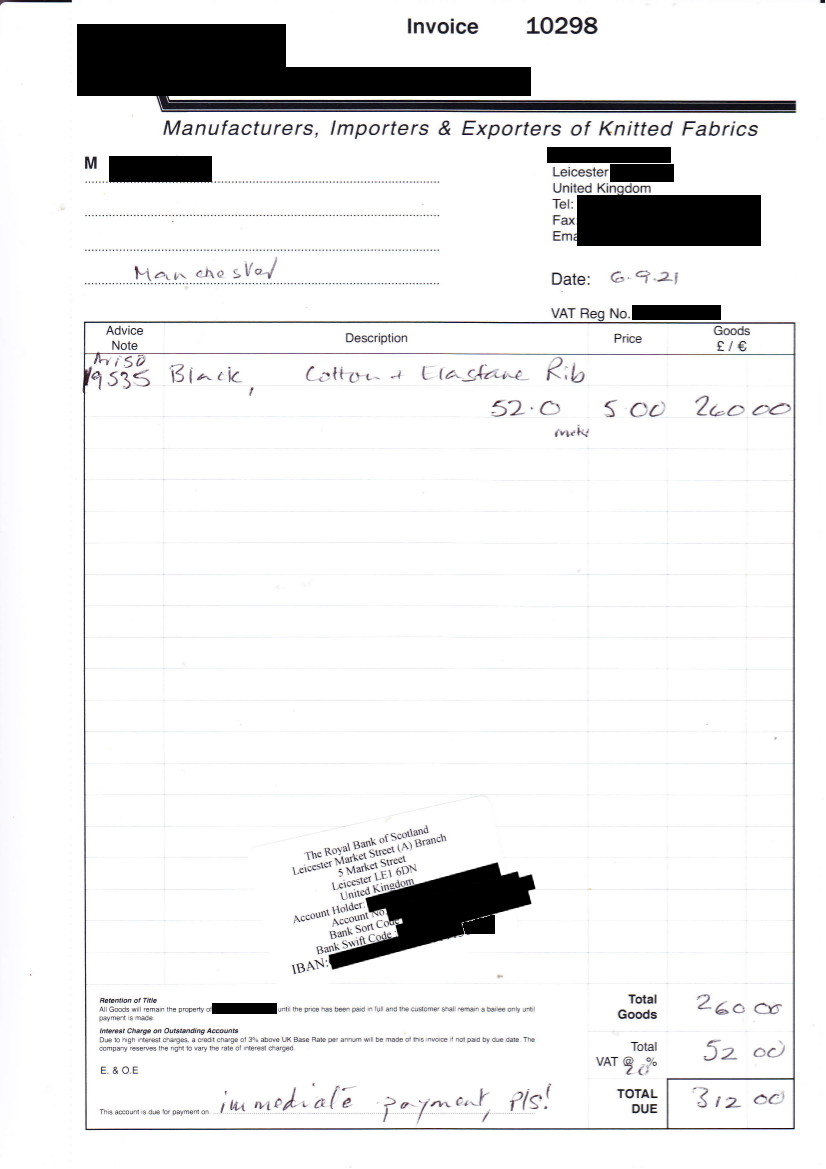 Invoice 10298
Manufacturers, Importers & Exporters of Knitted Fabrics
M
Leicester
United Kingdom
Tel:
Fax:
Ema
Manchester
Date: 6.9.21
VAT Reg No.
Advice Note Description Price Goods £ / €
9535 Black, Cotton + Elastane Rib
52.0 5 00 260 00
The Royal Bank of Scotland
Leicester Market Street (A) Branch
5 Market Street
Leicester LE1 6DN
United Kingdom
Account Holder:
Account No:
Bank Sort Code
Bank Swift Code :
IBAN:
Retention of Title
All Goods will remain the property of until the price has been paid in full and the customer shall remain a bailee only until
payment is made.
Interest Charge on Outstanding Accounts
Due to high interest charges, a credit charge of 3% above UK Base Rate per annum will be made of this invoice if not paid by due date. The
company reserves the right to vary the rate of interest charged.
E. & O.E
This account is due for payment on immediate payment, Pls!
Total Goods 260 00
Total VAT @ 20 % 52 00
TOTAL DUE 312 00